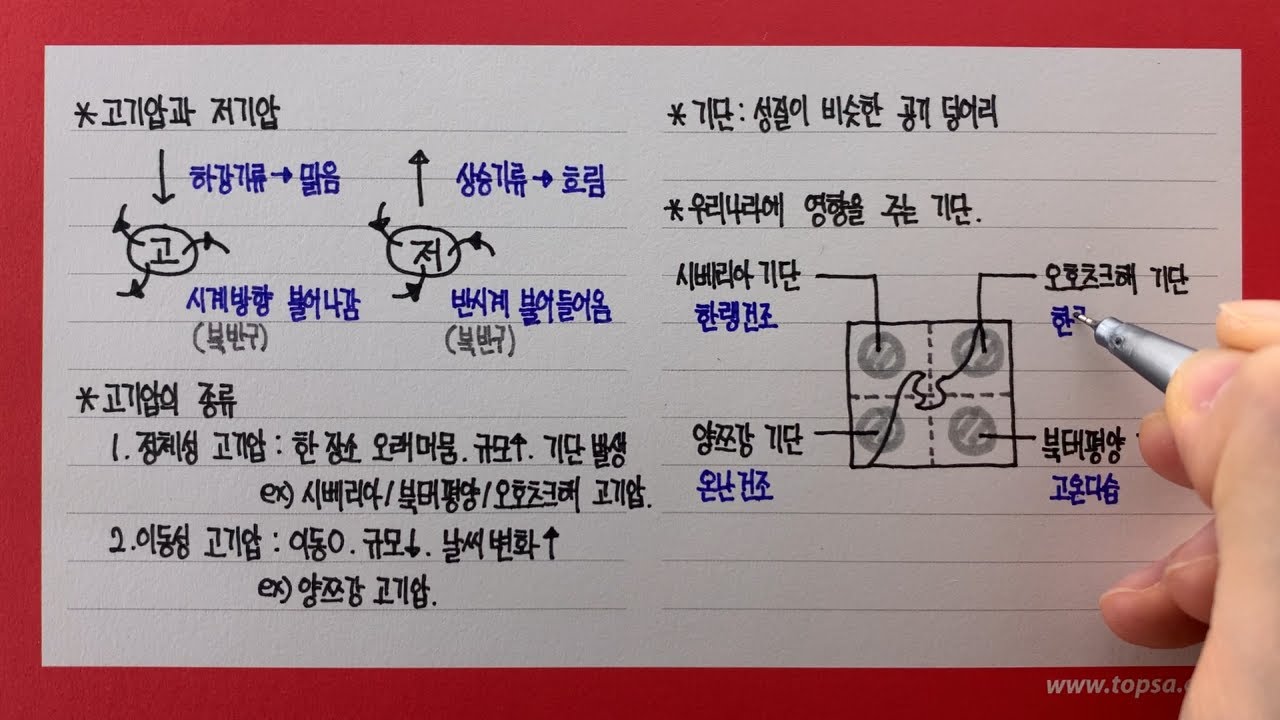 *고기압과 저기압
하강기류→맑음
상승기류→흐림
고
저
시계방향 불어나감
(북반구)
반시계 불어들어옴
(북반구)
*고기압의 종류
1. 정체성 고기압 : 한 장소 오래 머뭄. 규모↑. 기단 발생
ex) 시베리아/북태평양/오호츠크해 고기압.
2. 이동성 고기압 : 이동O. 규모↓. 날씨 변화↑
ex) 양쯔강 고기압.
*기단 : 성질이 비슷한 공기 덩어리
*우리나라에 영향을 주는 기단.
시베리아 기단
한랭건조
오호츠크해 기단
한
양쯔강 기단
온난건조
북태평양
고온다습
www.topsa.